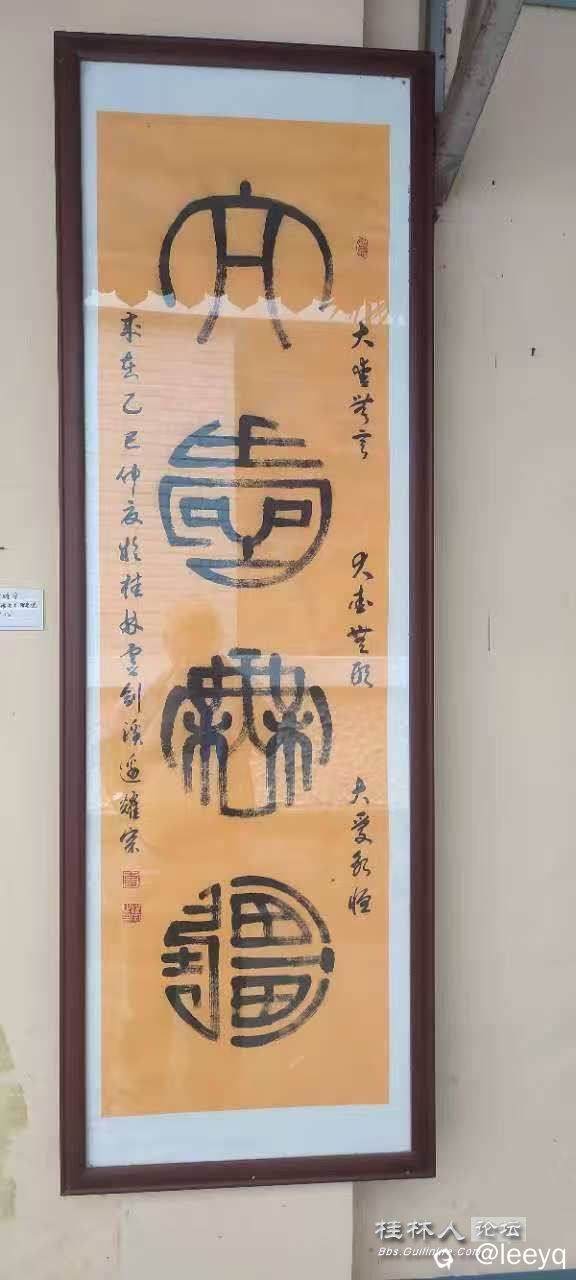 大無言
大無形
大愛永恒
大
無
疆
歲在乙巳仲夏於桂林雲劍溪邊耀宗
桂林人论坛
Bbs.Guilinlife.Com
@leeyq